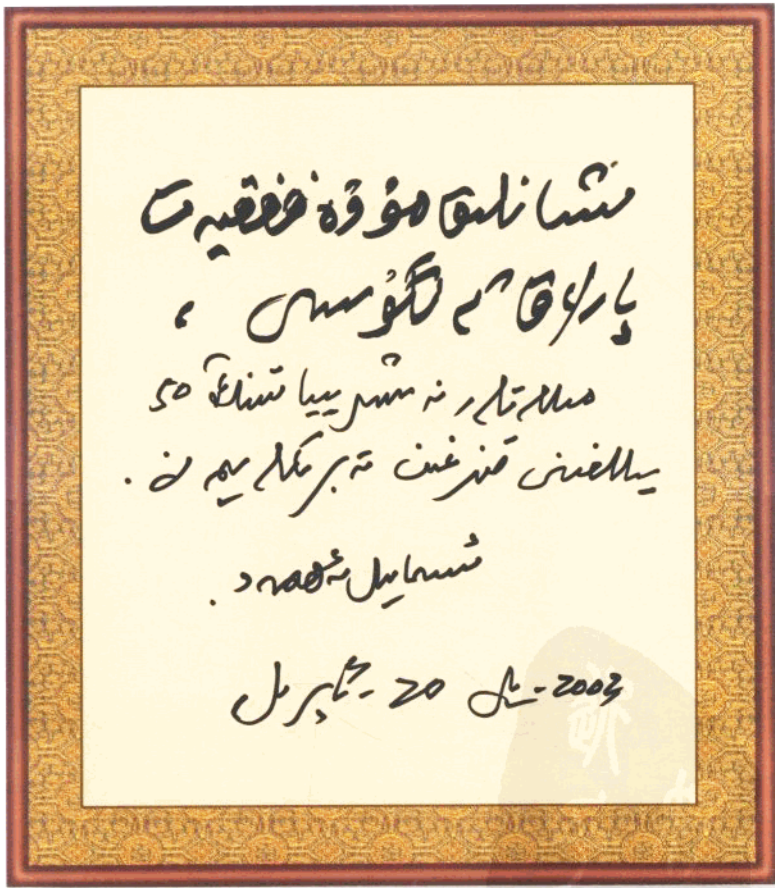 شانلىق مۇۋەپپەقىيەت
پارلاق كەلگۈسى ،
مىللەتلەر نەشرىياتىنىڭ 50
يىللىقىنى قىزغىن تەبرىكلەيمەن .
ئىسمايىل ئەھمەد .
2003 - يىل 20 - ئاپرىل